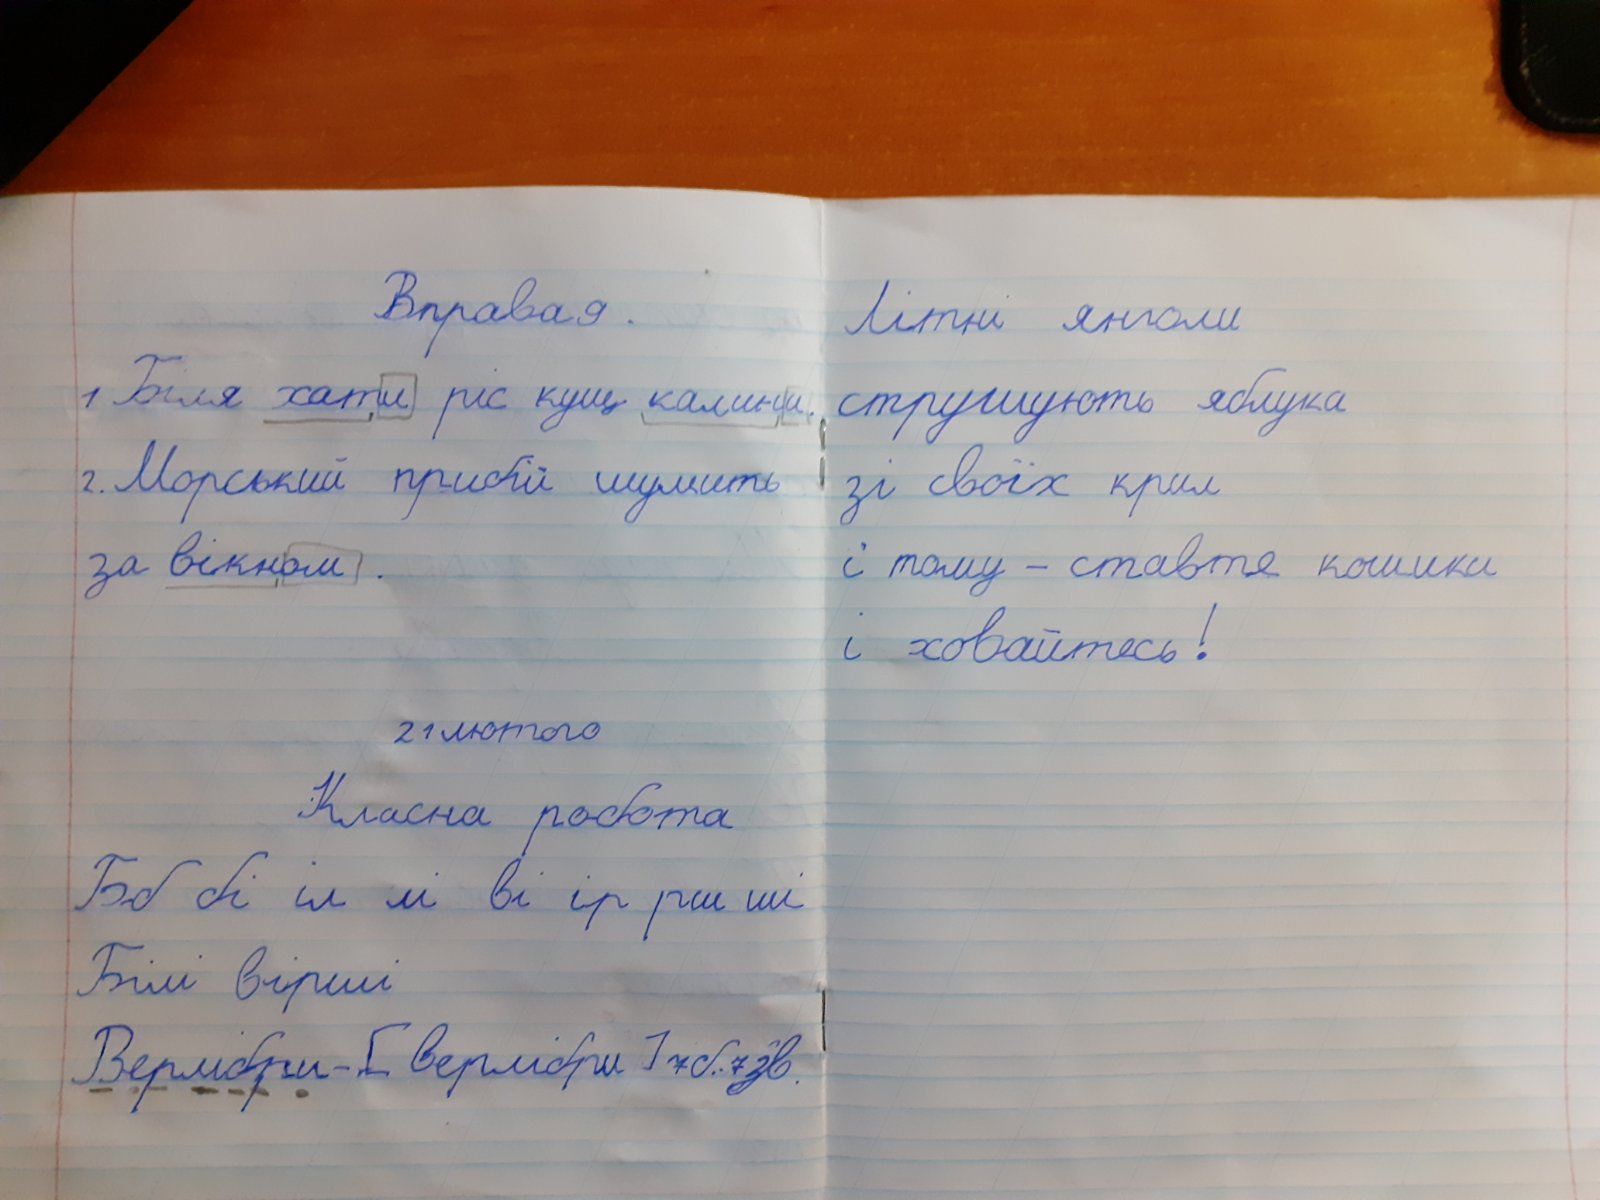 Вправа 9.
1 Біля хати ріс кущ калини.
2. Морський прибій шумить
за вікном.
21 лютого
Класна робота
Бб бі іл лі ві ір рш ші
Білі вірші
Верлібри - [верлібри] 7б. 7зв.
Літні янголи
струшують яблука
зі своїх крил
і тому - ставтя кошики
і ховайтесь!